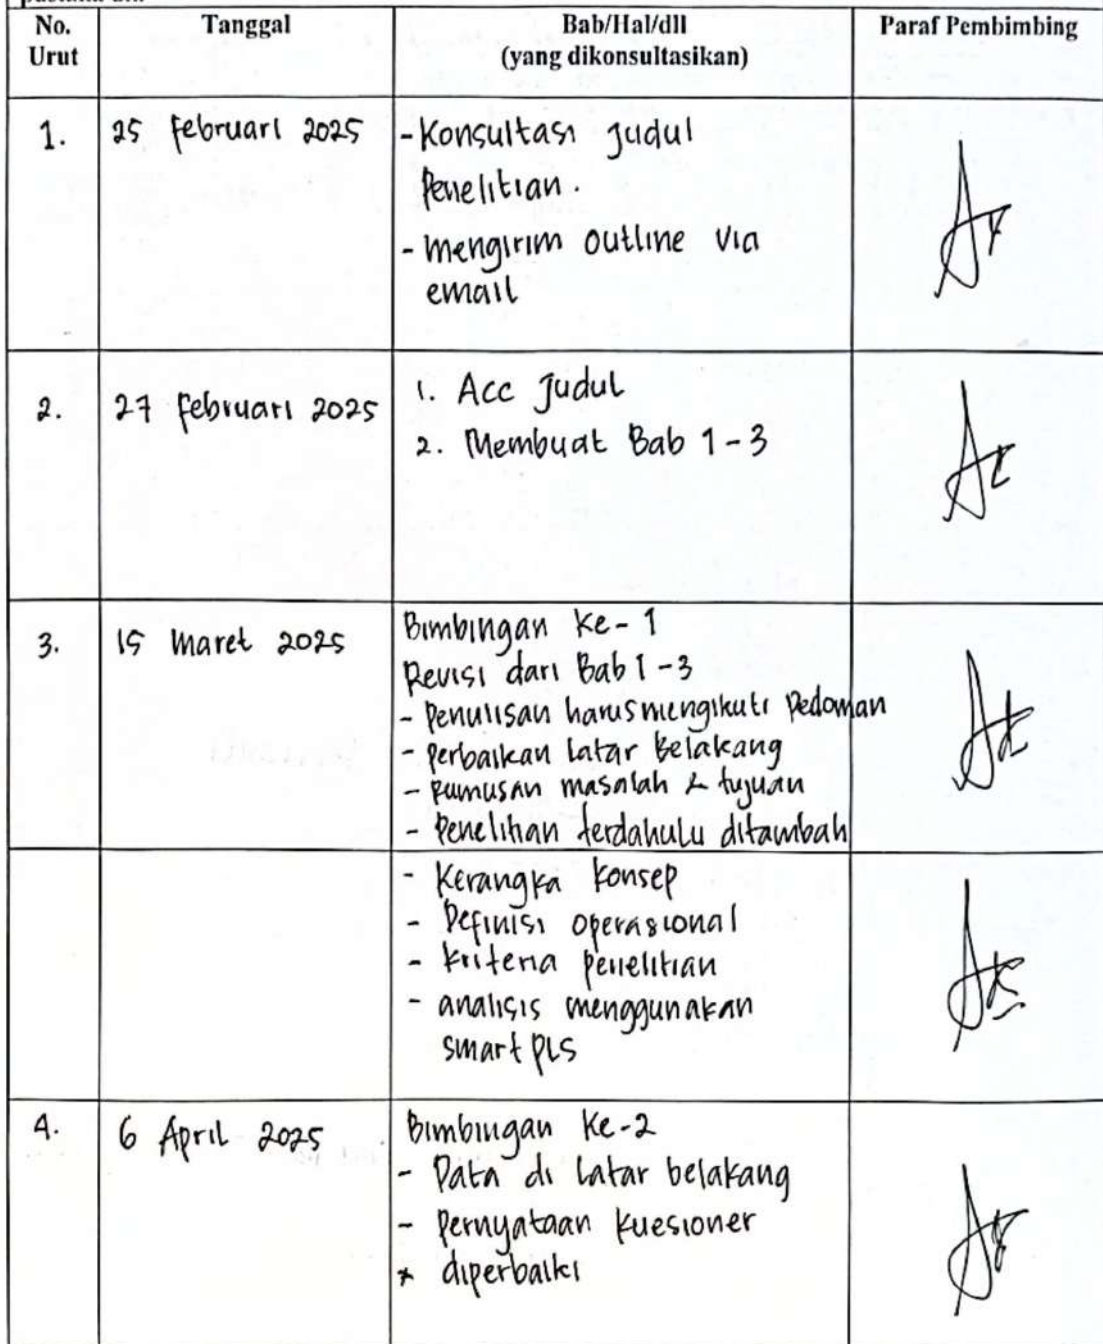 No. Urut
Tanggal
Bab/Hal/dll
(yang dikonsultasikan)
Paraf Pembimbing
1.
25 Februari 2025
- Konsultasi Judul
Penelitian.
- mengirim outline via
email
2.
27 Februari 2025
1. Acc Judul
2. Membuat Bab 1-3
3.
15 Maret 2025
Bimbingan Ke-1
Revisi dari Bab 1-3
- Penulisan harus mengikuti Pedoman
- Perbaikan Latar Belakang
- Rumusan masalah & tujuan
- Penelitian terdahulu ditambah
- Kerangka Konsep
- Definisi operasional
- Kriteria penelitian
- analisis menggunakan
smart PLS
4.
6 April 2025
Bimbingan Ke-2
- Data di Latar belakang
- Pernyataan Kuesioner
* diperbaiki